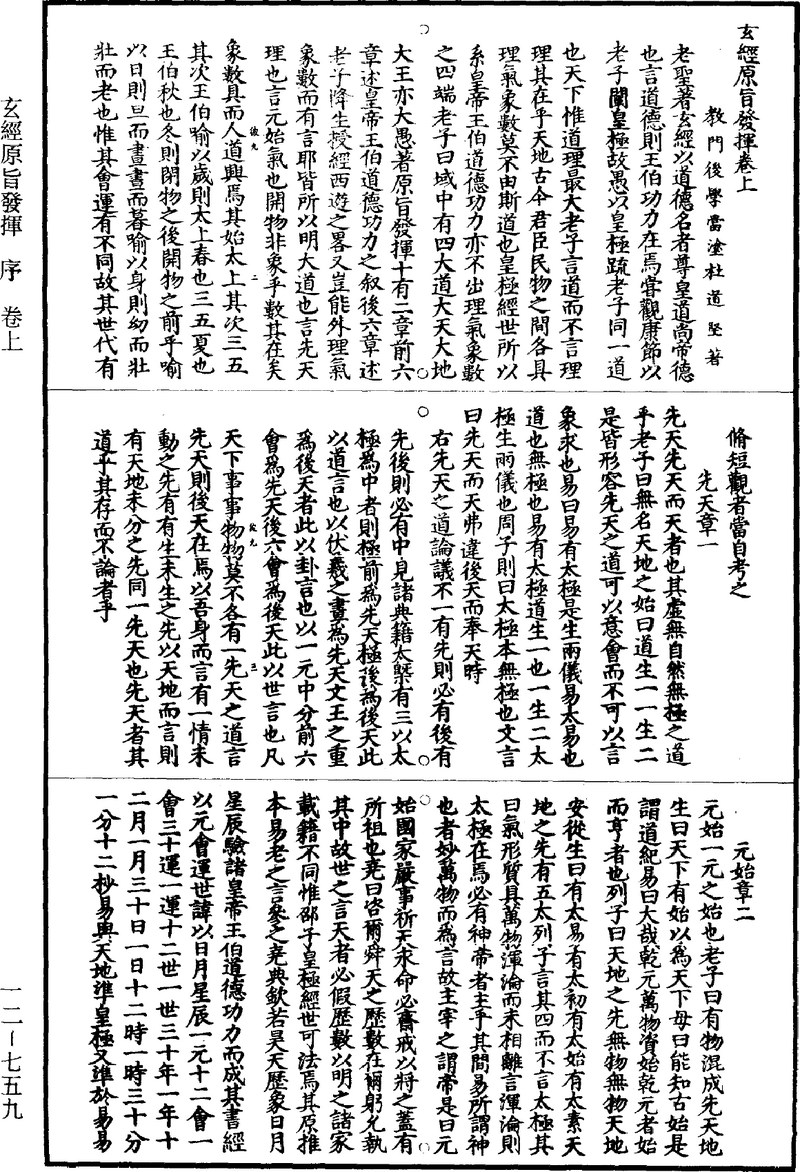 玄經原旨發揮卷上
教門後學當塗杜道堅著
老聖著玄經以道德名者尊皇道尚帝德
也言道德則王伯功力在焉甞觀康節以
老子闡皇極故愚以皇極疏老子同一道
也天下惟道理最大老子言道而不言理
理其在乎天地古今君臣民物之間各具
理氣象數莫不由斯道也皇極經世所以
系皇帝王伯道德功力亦不出理氣象數
之四端老子曰域中有四大道大天大地
大王亦大愚著原旨發揮十有二章前六
章述皇帝王伯道德功力之叙後六章述
老子降生授經西遊之畧又豈能外理氣
象數而有言耶皆所以明大道也言先天
理也言元始氣也開物非象乎數其在矣
象數具而人道興焉其始太上其次三五
其次王伯喻以歲則太上春也三五夏也
王伯秋也冬則閉物之後開物之前乎喻
以日則旦而晝晝而暮喻以身則幼而壯
壯而老也惟其會運有不同故其世代有
脩短觀者當自考之
先天章一
先天先天而天者也其虛無自然無極之道
乎老子曰無名天地之始曰道生一一生二
是皆形容先天之道可以意會而不可以言
象求也易曰易有太極是生兩儀易太易也
道也無極也易有太極道生一也一生二太
極生兩儀也周子則曰太極本無極也文言
曰先天而天弗違後天而奉天時
右先天之道論議不一有先則必有後有
先後則必有中見諸典籍太槩有三以太
極為中者則極前為先天極後為後天此
以道言也以伏羲之畫為先天文王之重
為後天者此以卦言也以一元中分前六
會為先天後六會為後天此以世言也凡
天下事事物物莫不各有一先天之道言
先天則後天在焉以吾身而言有一情未
動之先有有生未生之先以天地而言則
有天地未分之先同一先天也先天者其
道乎其存而不論者乎
元始章二
元始一元之始也老子曰有物混成先天地
生曰天下有始以為天下母曰能知古始是
謂道紀易曰大哉乾元萬物資始乾元者始
而亨者也列子曰天地之先無物無物天地
安從生曰有太易有太初有太始有太素天
地之先有五太列子言其四而不言太極其
曰氣形質具萬物渾淪而未相離言渾淪則
太極在焉必有神帝者主乎其間易所謂神
也者妙萬物而為言故主宰之謂帝是曰元
始國家嚴事祈天永命必齋戒以將之蓋有
所祖也堯曰咨爾舜天之歷數在爾躬允執
其中故世之言天者必假歷數以明之諸家
載籍不同惟邵子皇極經世可法焉其原推
本易老之言參之堯典欽若昊天歷象日月
星辰驗諸皇帝王伯道德功力而成其書經
以元會運世諱以日月星辰一元十二會一
會三十運一運十二世一世三十年一年十
二月一月三十日一日十二時一時三十分
一分十二杪易與天地準皇極又準於易易
玄經原旨發揮 序 卷上
一二－七五九